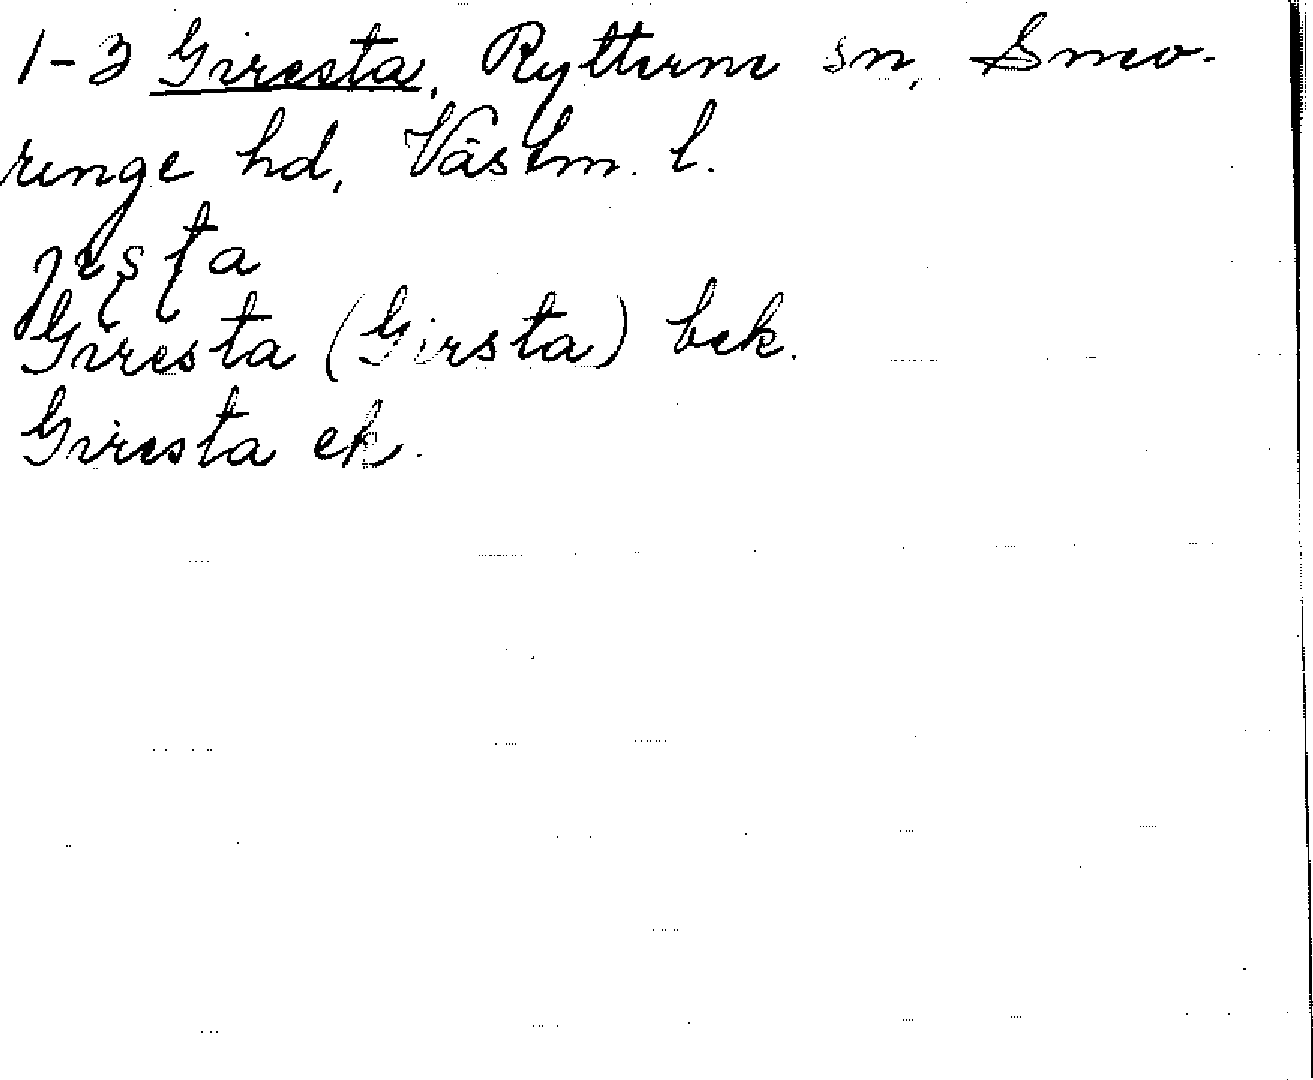 1-3 Giresta, Rytterne sn, Snev-
ringe hd, Västm. l.
Giresta (Girsta) bek.
Giresta ek.